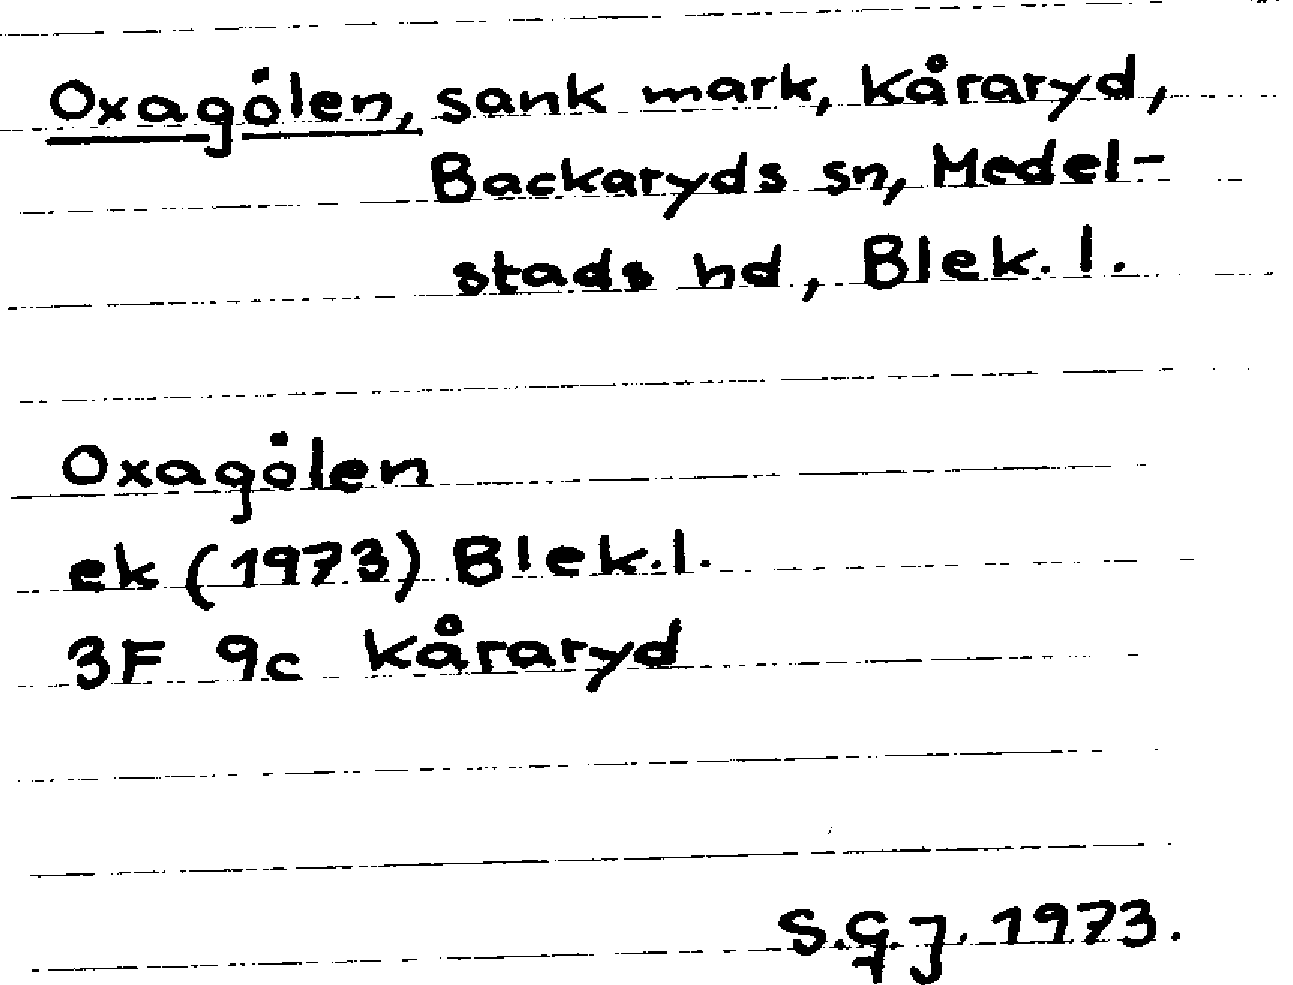 Oxagölen, sank mark, Kåraryd,
Backaryds sn, Medel-
stads hd, Blek. l.
Oxagölen
ek (1973) Blek.l.
3F 9c Kåraryd
S.G.J. 1973.